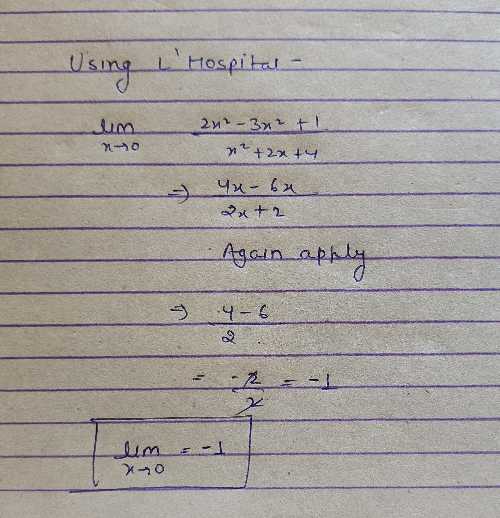 Using L'Hospital -
lim x→0 2x² - 3x² + 1 / x² + 2x + 4
⇒ 4x - 6x / 2x + 2
Again apply
⇒ 4 - 6 / 2
= -2 / 2 = -1
lim x→0 = -1